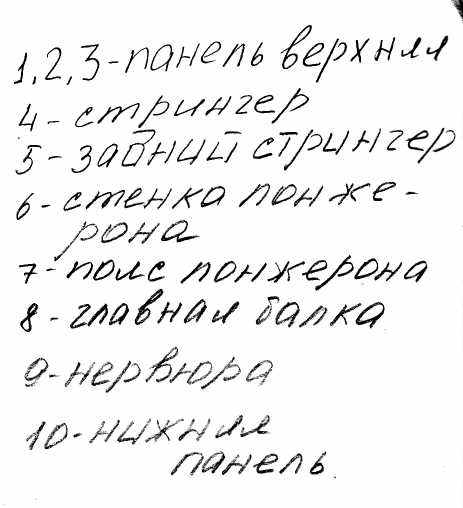 1,2,3-панель верхняя
4-стрингер
5-задний стрингер
6-стенка лонже-
рона
7-пояс лонжерона
8-главная балка
9-нервюра
10-нижняя
панель.